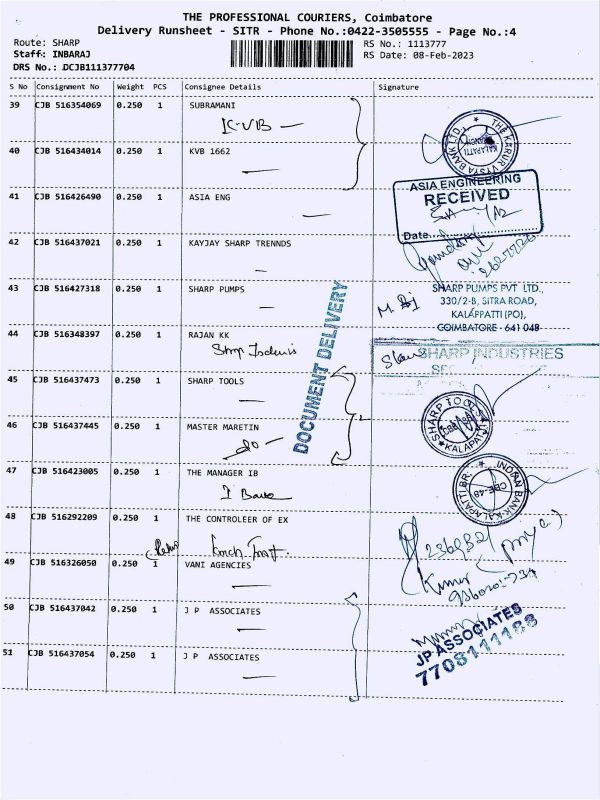 THE PROFESSIONAL COURIERS, Coimbatore
Delivery Runsheet - SITR - Phone No.:0422-3505555 - Page No.:4
Route: SHARP
RS No.: 1113777
Staff: INBARAJ
RS Date: 08-Feb-2023
DRS No.: DCJB111377704
S No Consignment No Weight PCS Consignee Details Signature
39 CJB 516354069 0.250 1 SUBRAMANI
KVB
THE KARUR VYSYA BANK LTD. KALAPATTI
40 CJB 516434014 0.250 1 KVB 1662
ASIA ENGINEERING
RECEIVED
Date
41 CJB 516426490 0.250 1 ASIA ENG
42 CJB 516437021 0.250 1 KAYJAY SHARP TRENNDS
43 CJB 516427318 0.250 1 SHARP PUMPS
SHARP PUMPS PVT LTD.,
330/2-B, SITRA ROAD,
KALAPPATTI (PO),
COIMBATORE - 641 048
DOCUMENT DELIVERY
44 CJB 516348397 0.250 1 RAJAN KK
SHARP INDUSTRIES
45 CJB 516437473 0.250 1 SHARP TOOLS
SHARP TOOLS KALAPATTI
46 CJB 516437445 0.250 1 MASTER MARETIN
47 CJB 516423005 0.250 1 THE MANAGER IB
INDIAN BANK-KALAPATTI BR. CBE-48
48 CJB 516292209 0.250 1 THE CONTROLEER OF EX
49 CJB 516326050 0.250 1 VANI AGENCIES
Kumar
50 CJB 516437042 0.250 1 J P ASSOCIATES
JP ASSOCIATES
7708111188
51 CJB 516437054 0.250 1 J P ASSOCIATES